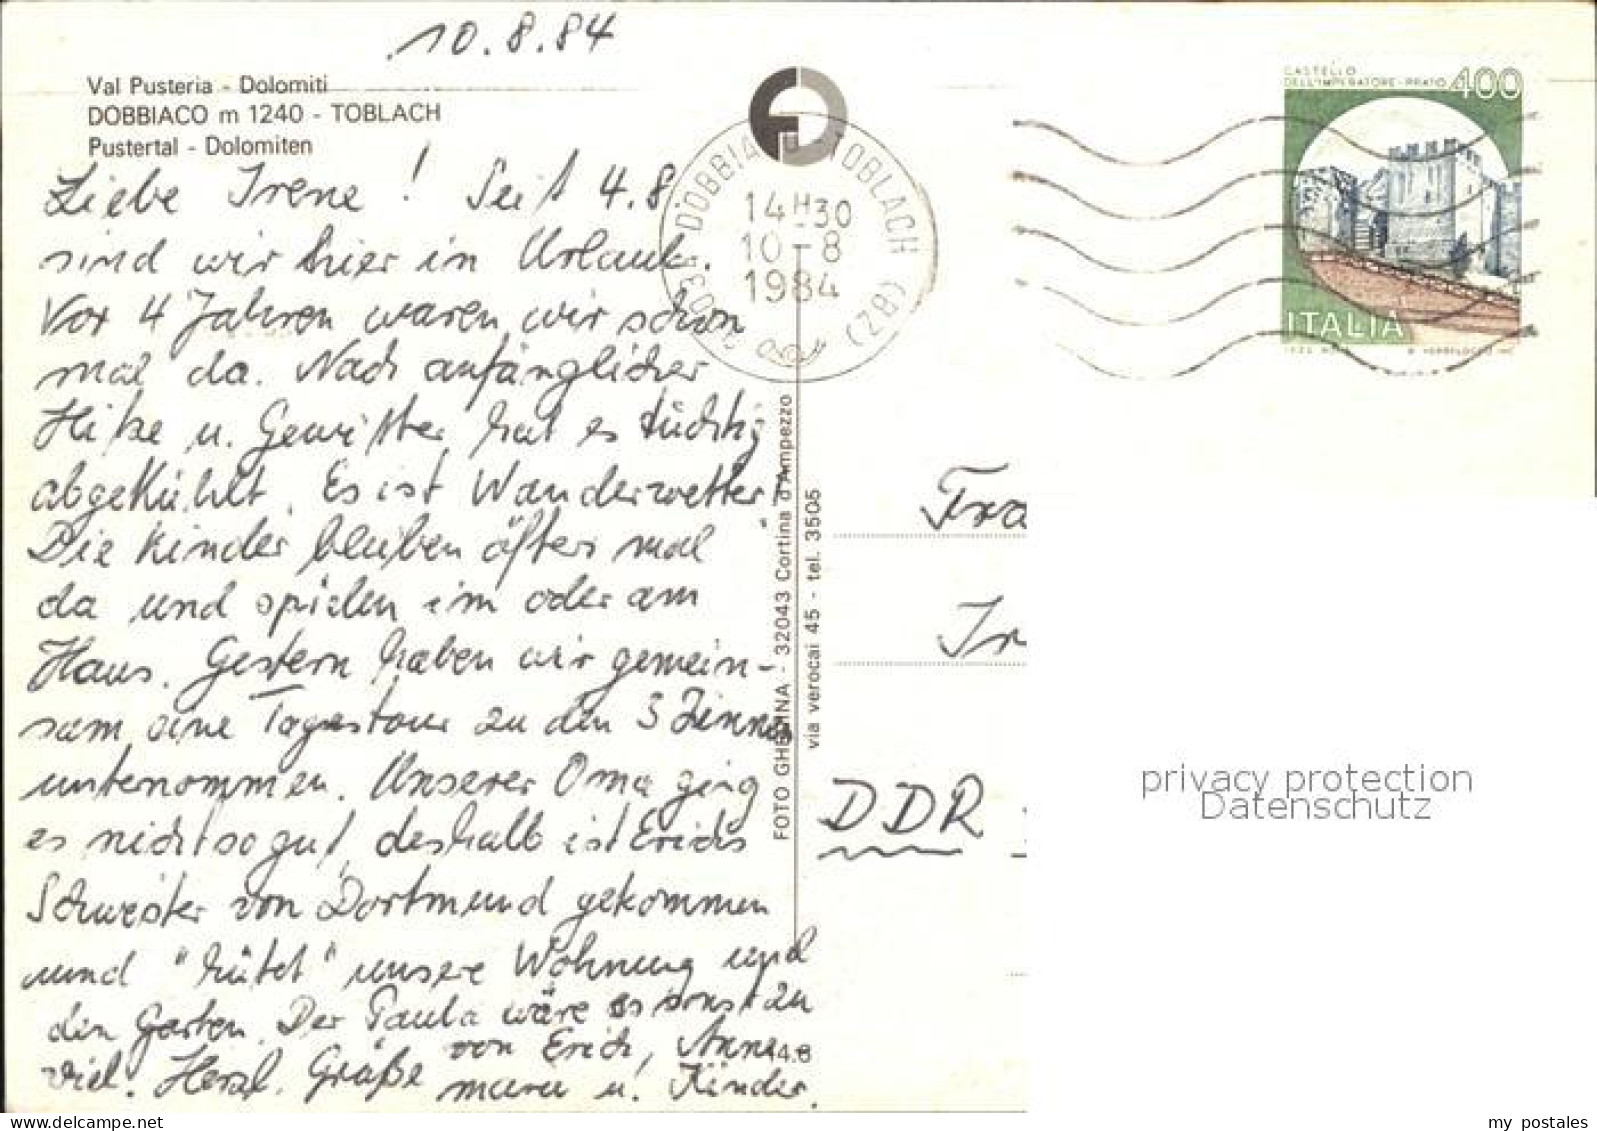 10.8.84
Val Pusteria - Dolomiti
DOBBIACO m 1240 - TOBLACH
Pustertal - Dolomiten
Liebe Irene! Seit 4.8
sind wir hier in Urlaub.
Vor 4 Jahren waren wir schon
mal da. Nach anfänglicher
Hitze u. Gewitter hat es tüchtig
abgekühlt. Es ist Wanderwetter!
Die Kinder bleiben öfters mal
da und spielen im oder am
Haus. Gestern haben wir gemein-
sam eine Tagestour zu den 3 Zinnen
unternommen. Unserer Oma ging
es nicht so gut, deshalb ist Erichs
Schwester von Dortmund gekommen
und "hütet" unsere Wohnung und
den Garten. Der Paula wäre es sonst zu
viel. Herzl. Grüße von Erich, Anne-
marie u. Kinder.
14.8
FOTO GHEDINA - 32043 Cortina d'Ampezzo
via verocai 45 - tel. 3505
DOBBIACO TOBLACH
14H30
10-8
1984
(BZ)
CASTELLO
DELL'IMPERATORE-PRATO 400
ITALIA
Fra
Ir
DDR
privacy protection
Datenschutz
my postales